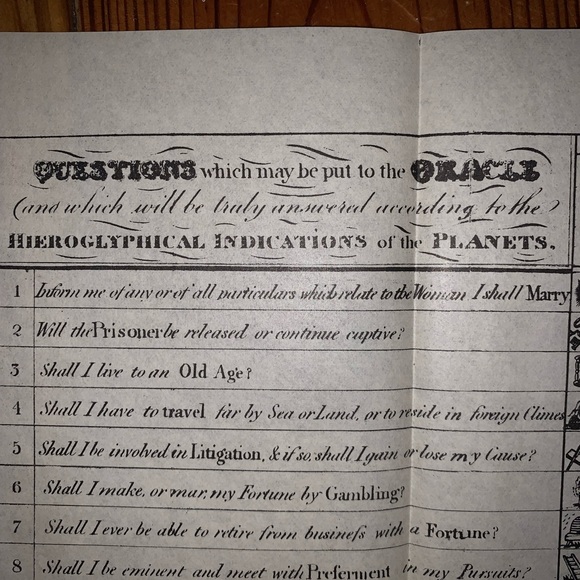 QUESTIONS which may be put to the ORACLE
(and which will be truly answered according to the)
HIEROGLYPHICAL INDICATIONS of the PLANETS.
1 Inform me of any or of all particulars which relate to the Woman I shall Marry
2 Will the Prisoner be released or continue captive?
3 Shall I live to an Old Age?
4 Shall I have to travel far by Sea or Land, or to reside in foreign Climes
5 Shall I be involved in Litigation, & if so, shall I gain or lose my Cause?
6 Shall I make, or mar, my Fortune by Gambling?
7 Shall I ever be able to retire from businefs with a Fortune?
8 Shall I be eminent and meet with Preferment in my Pursuits?